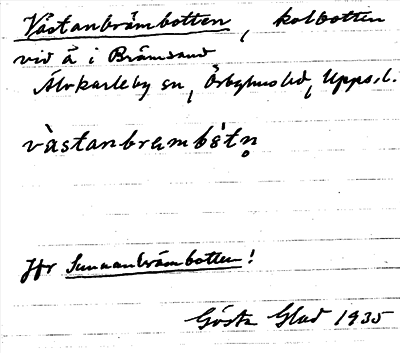 Västanbrämbotten, kolbotten
vid å i Brämsand
Älvkarleby sn, Örbyhus hd, Upps. l.
vàstanbrambòtn̥
Jfr Sunnanbrämbotten!
Gösta Glad 1935